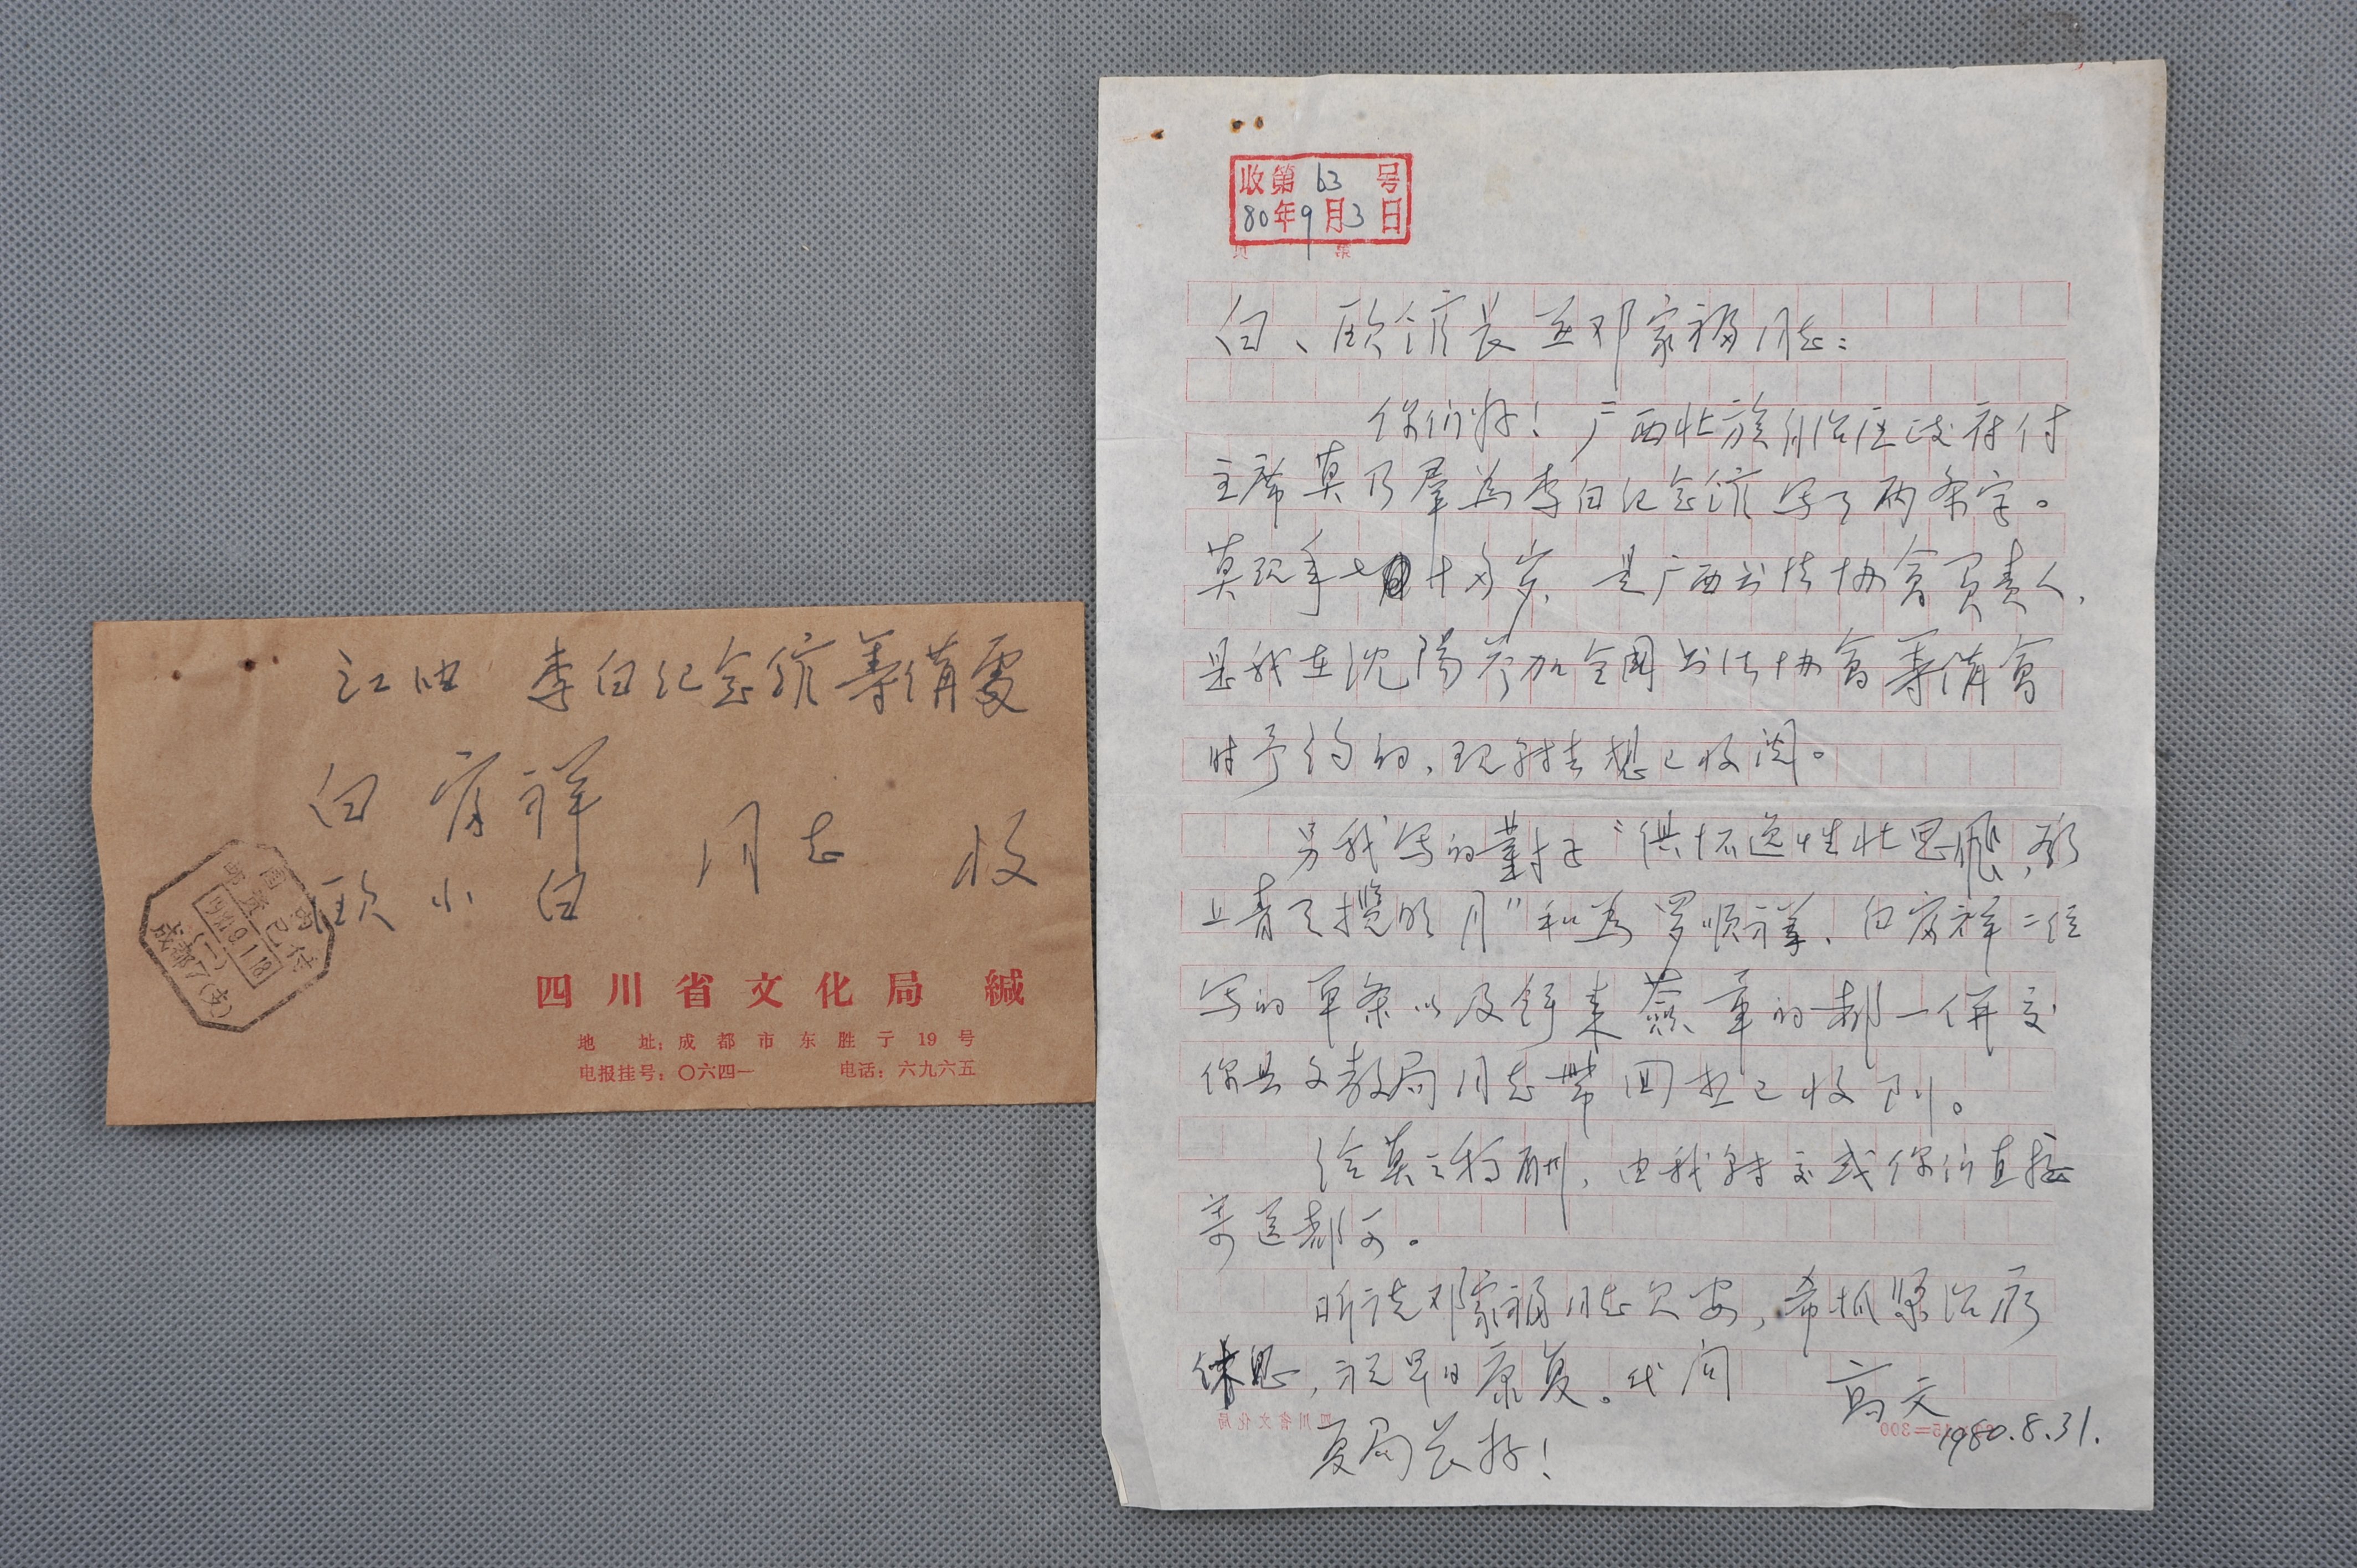 江油 李白纪念馆筹备處
白 祥
欧 小 白
同志 收
四川省文化局 缄
地 址：成都市东胜亍19号
电报挂号：〇六四一 电话：六九六五
邮资已付
成都7(支)
收第63号
80年9月3日
页 第
白、欧馆长並邓家福同志：
你们好！广西壮族自治区政府付
主席莫乃羣为李白纪念馆写了两条字。
莫现年七十多岁，是广西书法协會负责人，
是我在沈陽参加全國书法协會筹備會
时予约的，现转去想已收阅。
另我写的對子“俱怀逸性壮思飛，欲
上青天揽明月”和为罗顺祥、白祥二位
写的单条以及舒来蓋章的都一併交
你县文教局同志带回想已收到。
给莫之稿酬，由我转交或你们直接
寄送都可。
听说邓家福同志欠安，希抓緊治疗
休息，祝早日康复。代问
夏局长好！
高文
1980.8.31.
四川省文化局
15=300